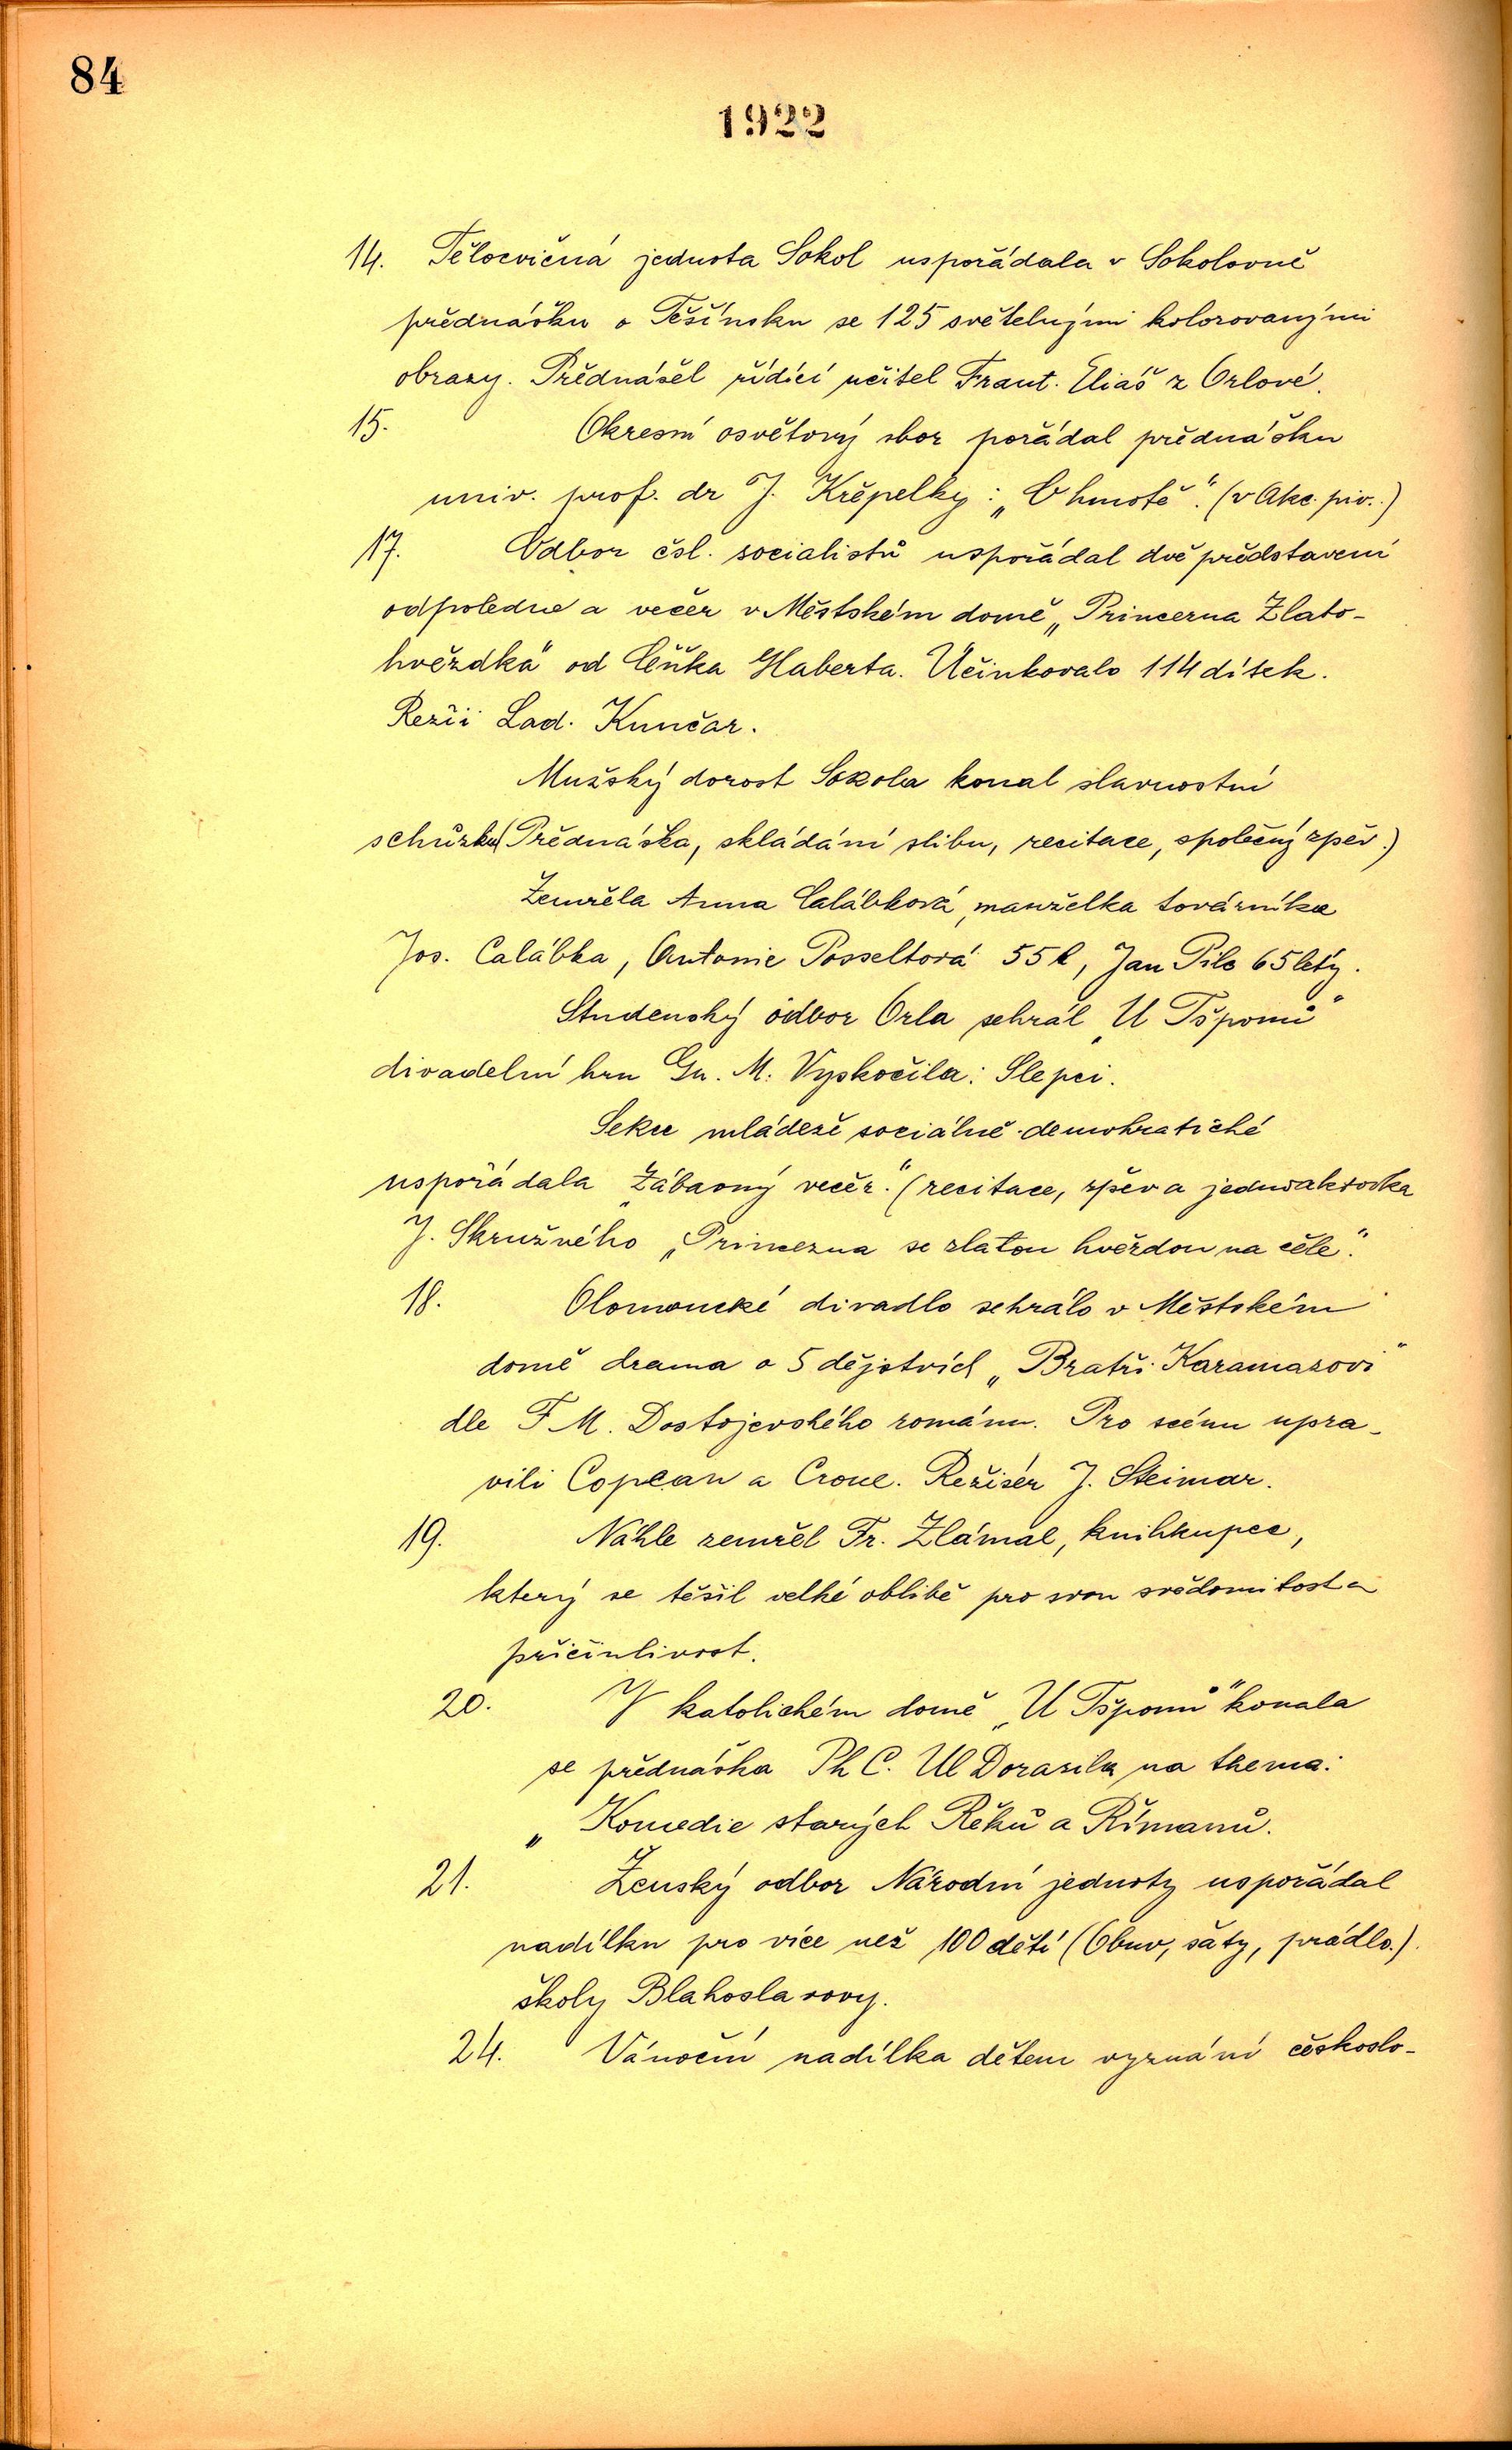 84
1922
14. Tělocvičná jednota Sokol uspořádala v Sokolovně
přednášku o Těšínsku se 125 světelnými kolorovanými
obrazy. Přednášel řídící učitel Frant. Eliáš z Orlové.
15. Okresní osvětový sbor pořádal přednášku
univ. prof. dr J. Křepelky: „O hmotě". (v Akc. piv.)
17. Odbor čsl. socialistů uspořádal dvě představení
odpoledne a večer v Městském domě „Princezna Zlato-
hvězdka" od Čeňka Haberta. Účinkovalo 114 dítek.
Režii Lad. Kunčar.
Mužský dorost Sokola konal slavnostní
schůzku (Přednáška, skládání slibu, recitace, společný zpěv.)
Zemřela Anna Calábková, manželka továrníka
Jos. Calábka, Antonie Posseltová 55 l, Jan Pilc 65letý.
Studenský odbor Orla sehrál „U Tšponů"
divadelní hru Gn. M. Vyskočila: Slepci.
Sekce mládeže sociálně-demokratické
uspořádala „Zábavný večer." (recitace, zpěv a jednoaktovka
J. Skružného „Princezna se zlatou hvězdou na čele".
18. Olomoucké divadlo sehrálo v Městském
domě drama o 5 dějstvích „Bratři Karamazovi"
dle F M. Dostojevského románu. Pro scénu upra-
vili Copean a Croue. Režisér J. Steimar.
19. Náhle zemřel Fr. Zlámal, knihkupec,
který se těšil velké oblibě pro svou svědomitost a
přičinlivost.
20. V katolickém domě „U Tšponů" konala
se přednáška Ph C. Ul Dorazila na thema:
„Komedie starých Řeků a Římanů.
21. Ženský odbor Národní jednoty uspořádal
nadílku pro více než 100 dětí (Obuv, šaty, prádlo.)
školy Blahoslavovy.
24. Vánoční nadílka dětem vyznání českoslo-